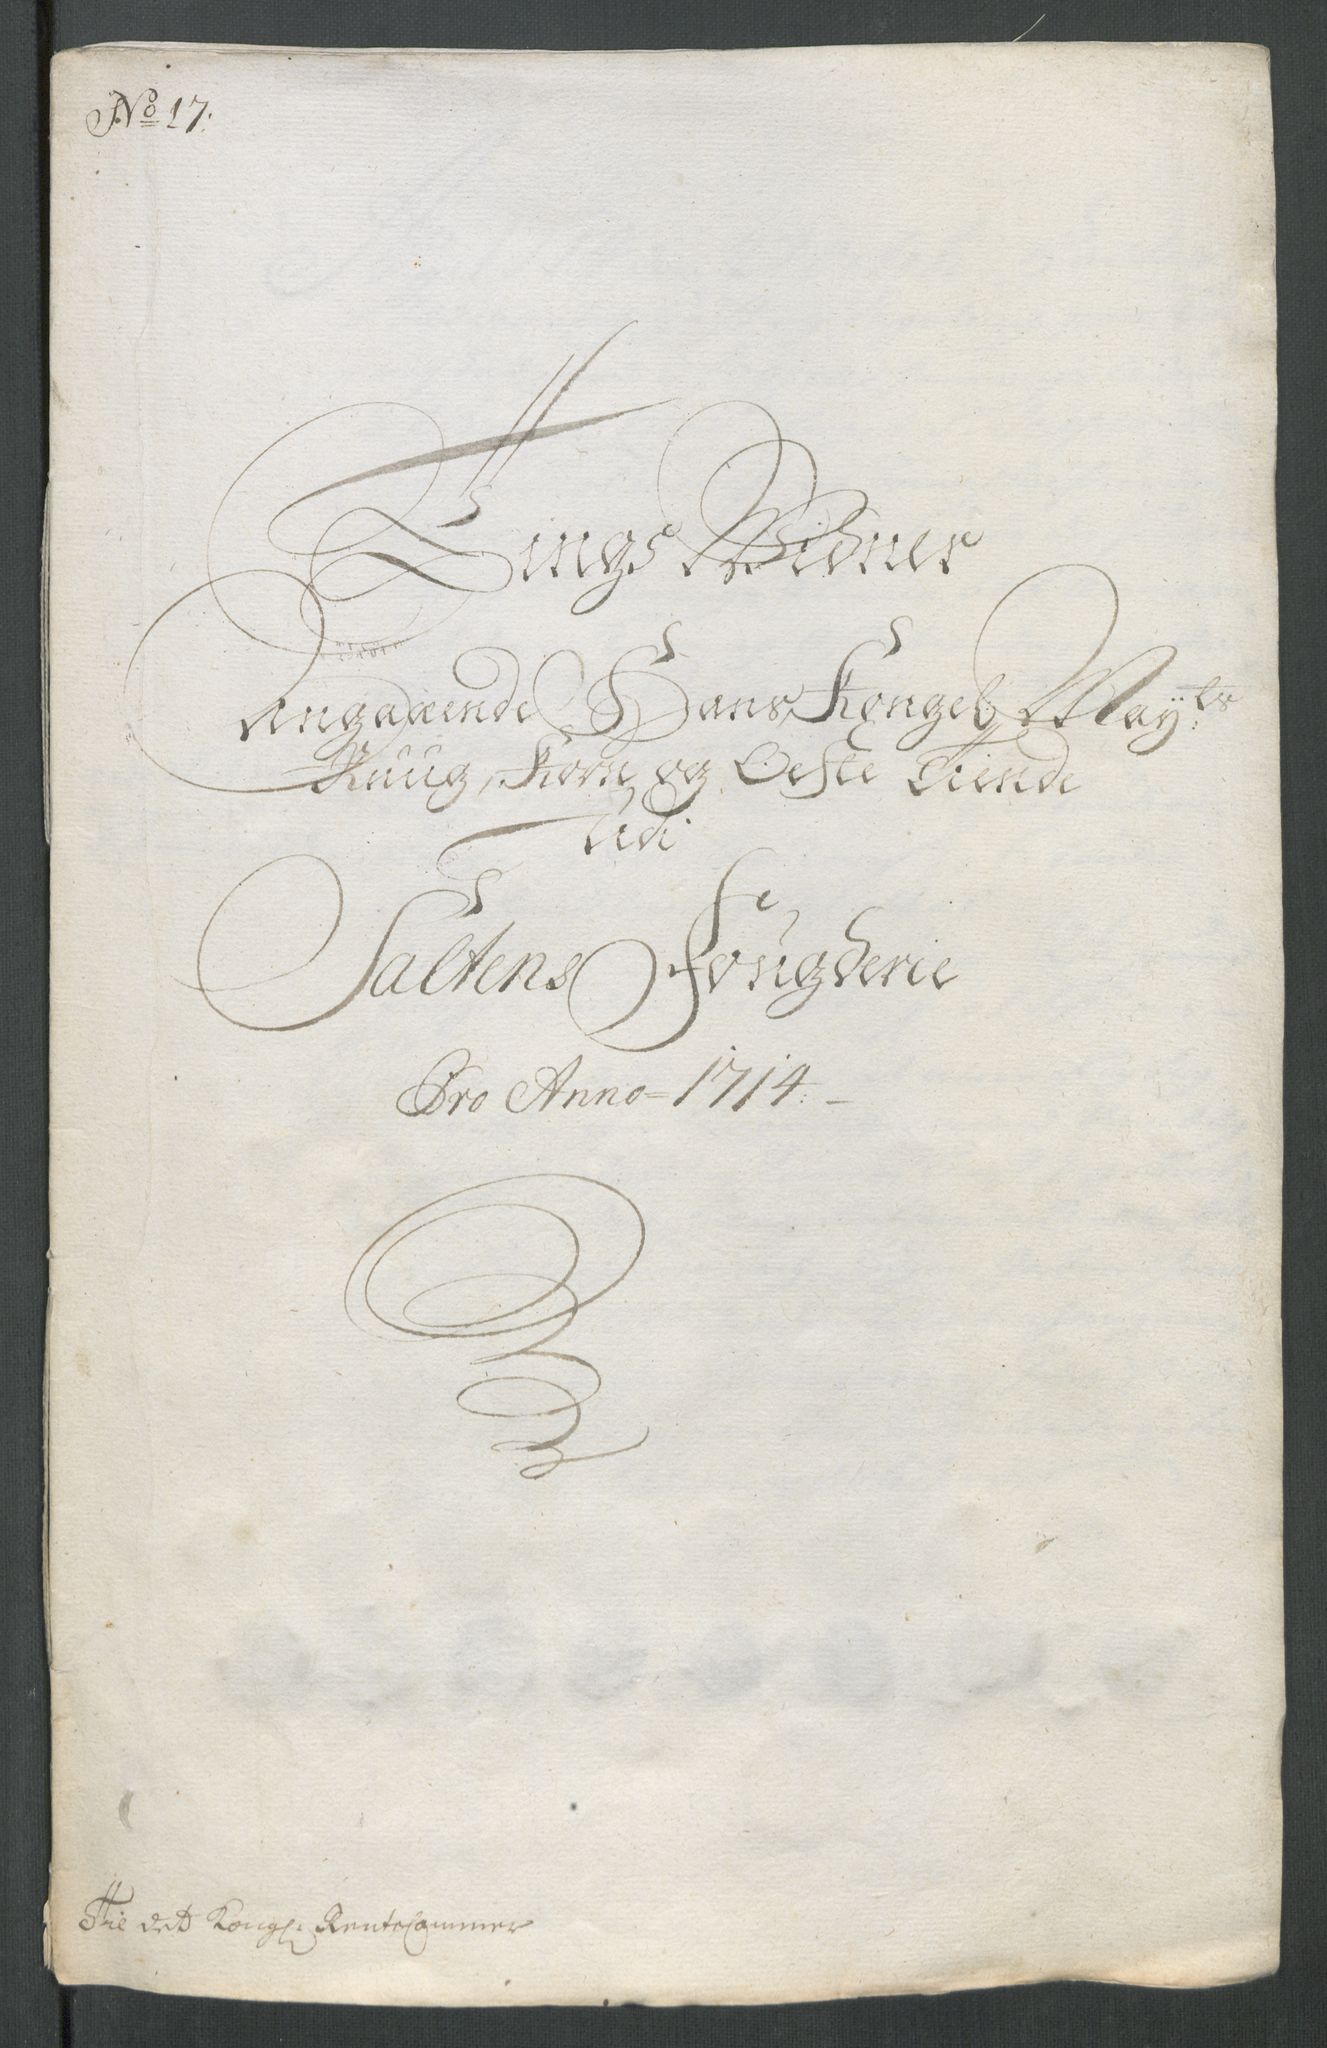 No 17.
Tings Widner
Angaaende Hans Kongel: May:ts
Rüüg, Korn og Oste Tiende
Udi
Saltens Fougderie
Pro Anno = 1714. –
Til det Kongl: Rentecammer